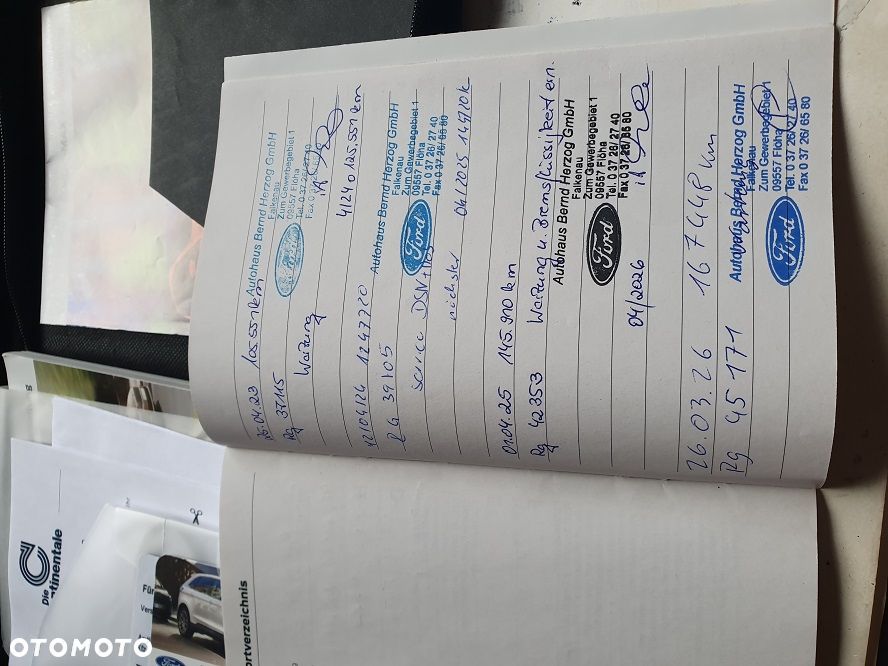 25.04.23 105.551 km
Rg 37115
Wartung
Autohaus Bernd Herzog GmbH
Falkenau
Zum Gewerbegebiet 1
09557 Flöha
Tel. 0 37 26/ 27 40
Fax 0
Ford
12/04/24 124
4/24 o 125.551 km
RG 39105
Service DSN +
nächster 04/2025
Autohaus Bernd Herzog GmbH
Falkenau
Zum Gewerbegebiet 1
09557 Flöha
Tel. 0 37 26/ 27 40
Fax 0 37 26/ 65 80
Ford
01.04.25 145.910 km
Rg 42353 Wartung u. Bremsflüssigkeit ern.
Autohaus Bernd Herzog GmbH
Falkenau
Zum Gewerbegebiet 1
09557 Flöha
Tel. 0 37 26/ 27 40
Fax 0 37 26/ 65 80
Ford
04/2026
26.03.26 167448 km
Rg 45171
Autohaus Bernd Herzog GmbH
Falkenau
Zum Gewerbegebiet 1
09557 Flöha
Tel. 0 37 26/ 27 40
Fax 0 37 26/ 65 80
Ford
ortverzeichnis
Die
ntinentale
Für
Vers
Ford
OTOMOTO